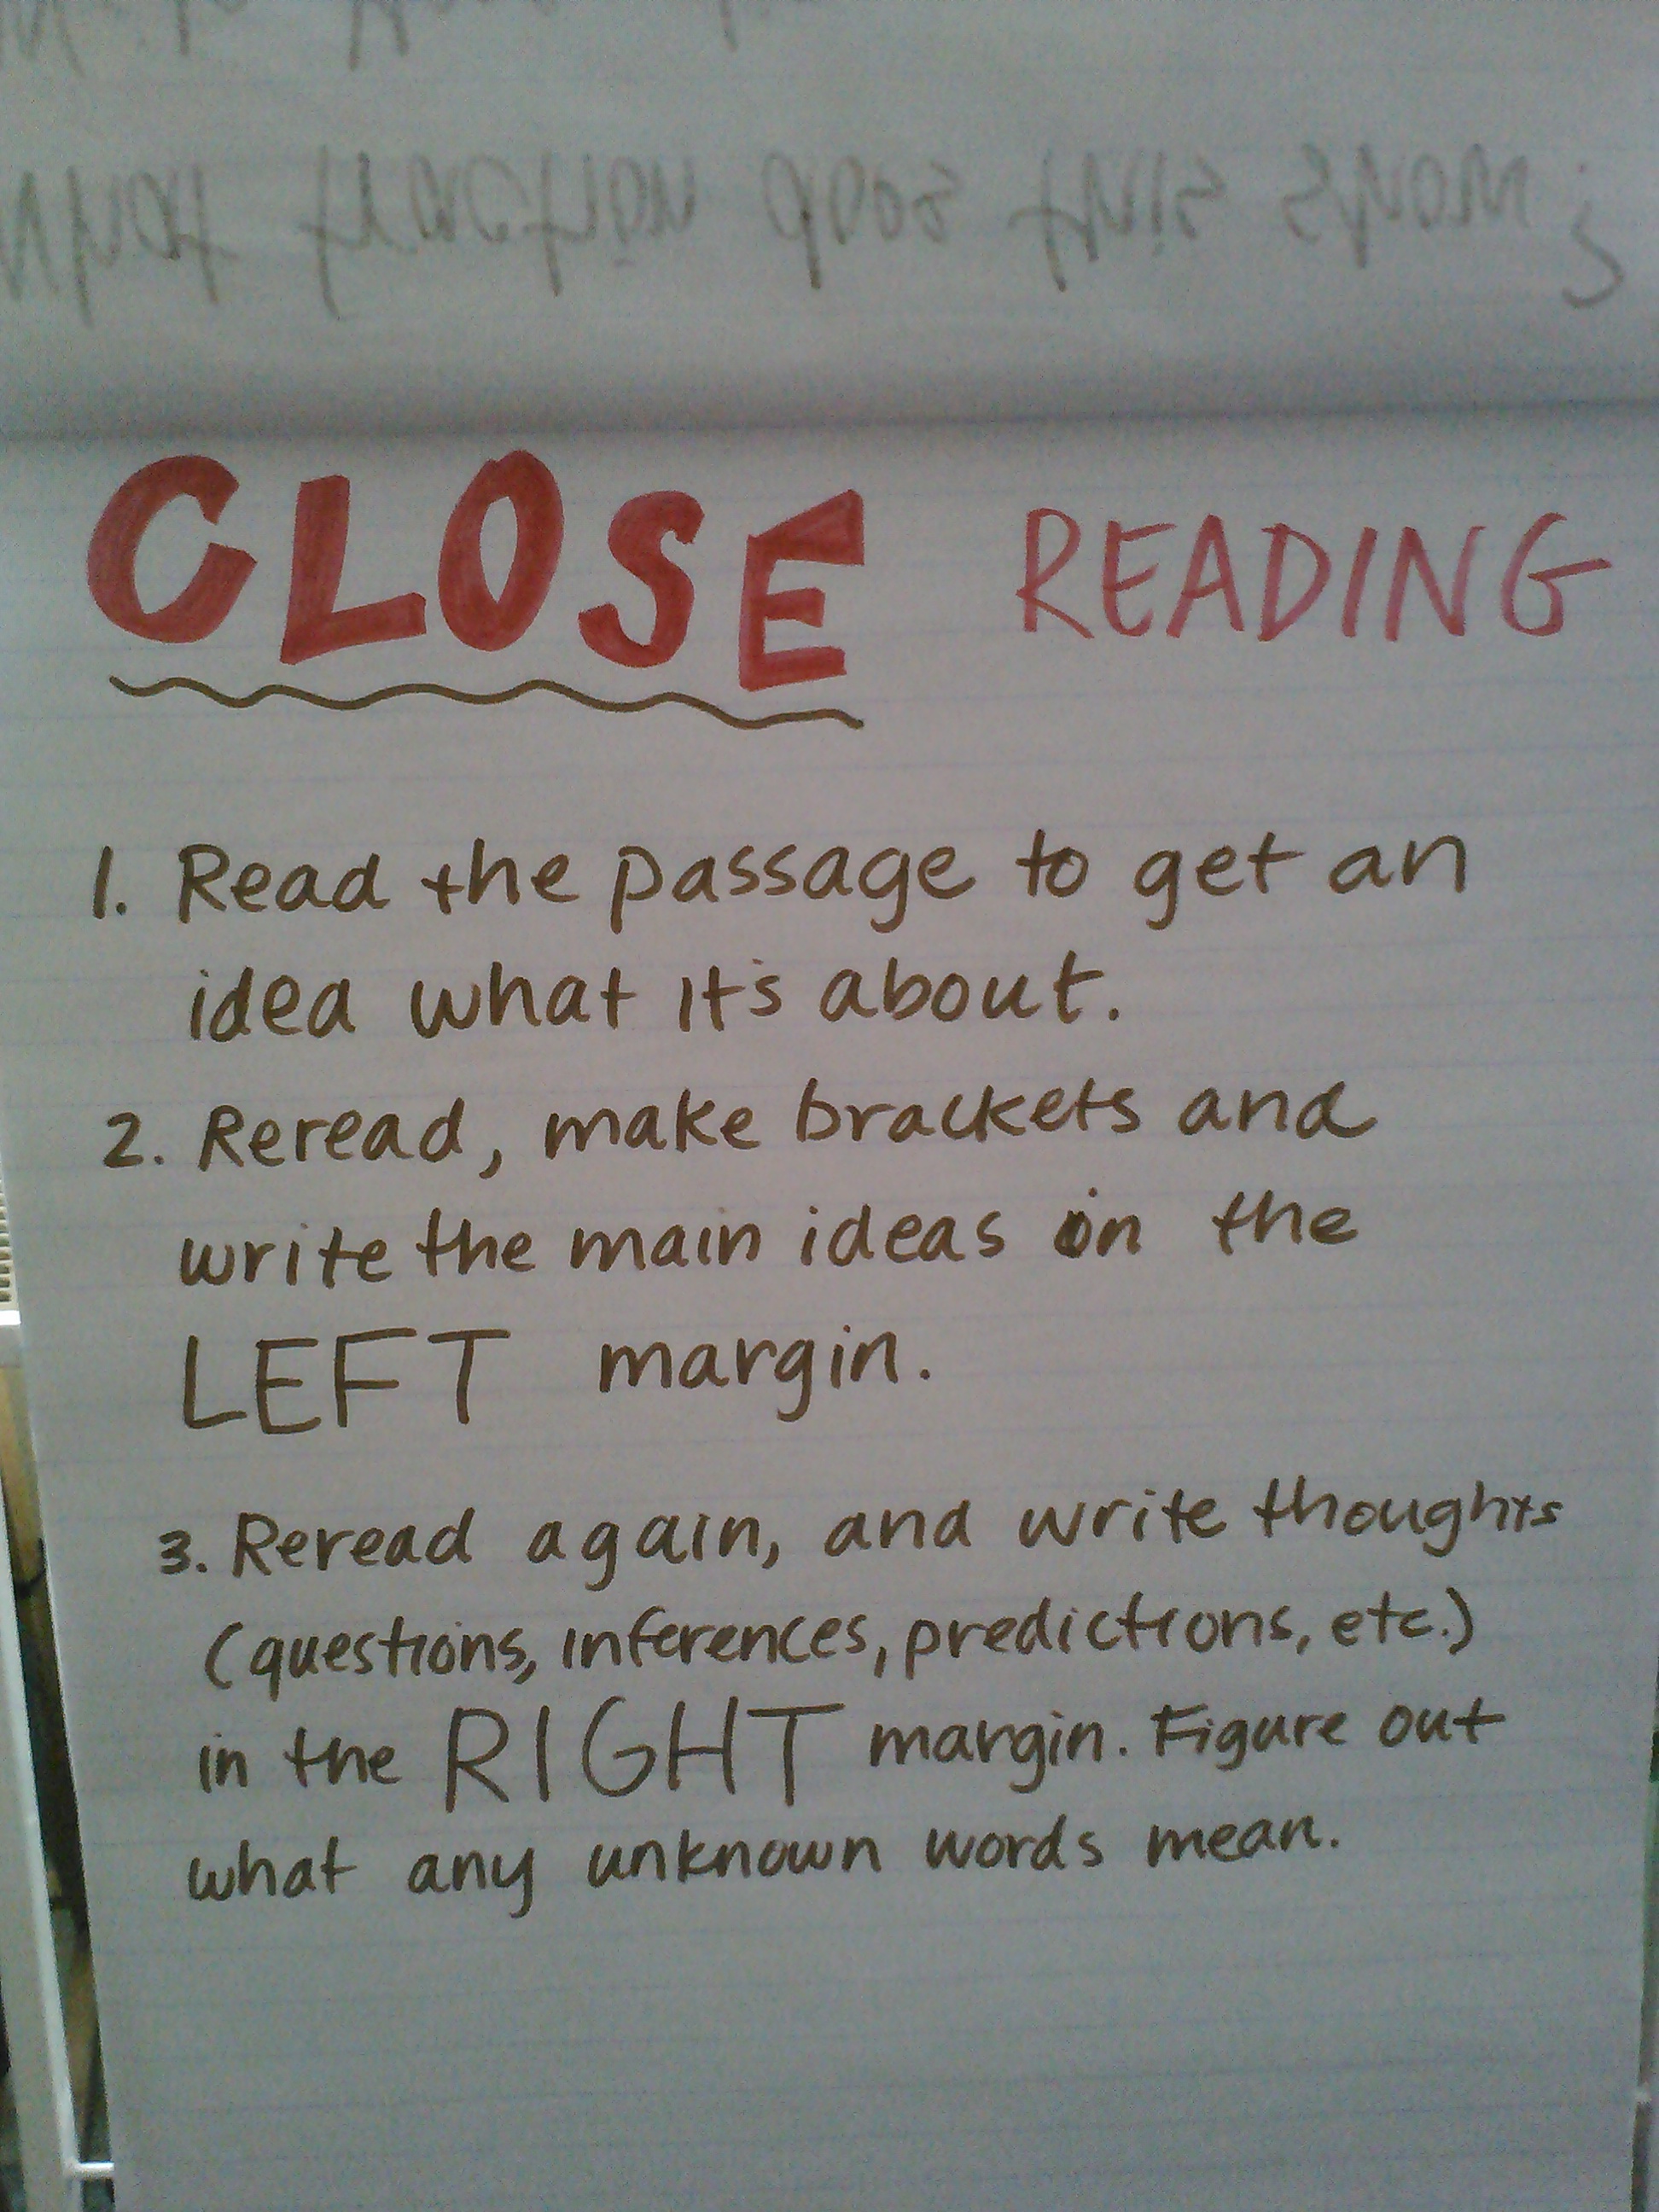 What fraction does this show?
CLOSE READING
1. Read the passage to get an
idea what it's about.
2. Reread, make brackets and
write the main ideas in the
LEFT margin.
3. Reread again, and write thoughts
(questions, inferences, predictions, etc.)
in the RIGHT margin. Figure out
what any unknown words mean.